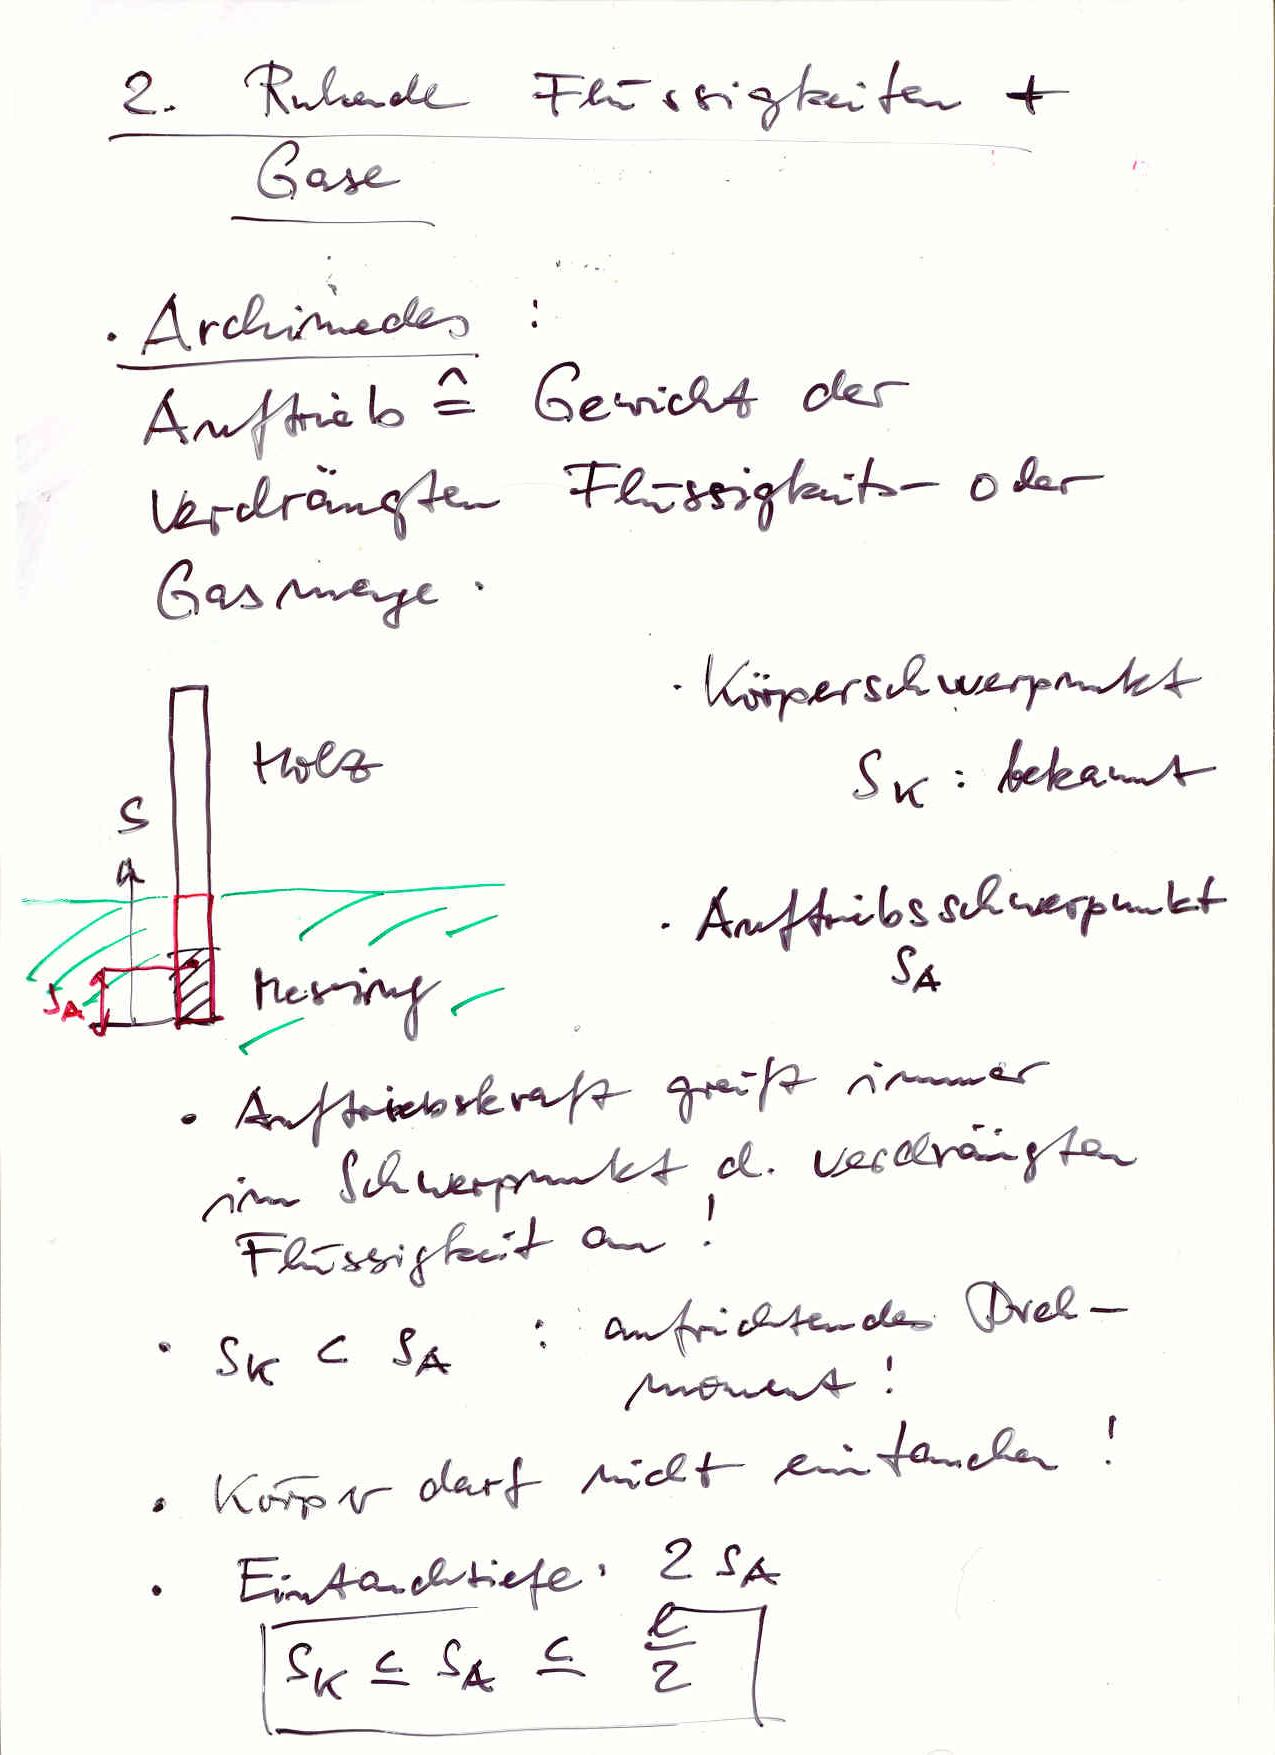 2. Ruhende Flüssigkeiten +
Gase
· Archimedes :
Auftrieb ≙ Gewicht der
verdrängten Flüssigkeits- oder
Gasmenge.
· Körperschwerpunkt
Holz
S_K : bekannt
S
· Auftriebsschwerpunkt
S_A
S_A
Messing
• Auftriebskraft greift immer
im Schwerpunkt d. verdrängten
Flüssigkeit an !
· S_K < S_A : aufrichtendes Dreh-
moment !
• Körper darf nicht eintauchen !
• Eintauchtiefe: 2 S_A
S_K ≤ S_A ≤ ℓ/2